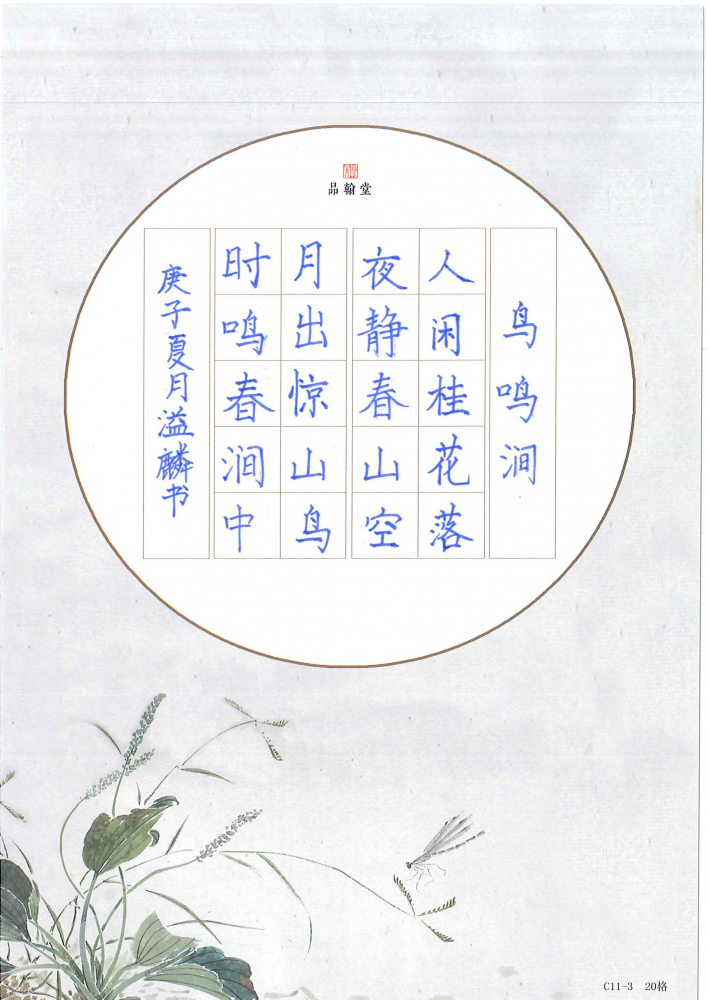 品翰堂
鸟鸣涧
人闲桂花落
夜静春山空
月出惊山鸟
时鸣春涧中
庚子夏月溢麟书
C11-3 20格